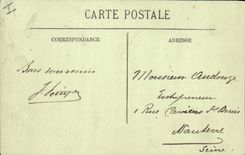 I
CARTE POSTALE
CORRESPONDANCE
ADRESSE
Bons souvenirs
Monsieur Andouze
Entrepreneur
1 Rue Carrières St Denis
Nanterre
Seine.